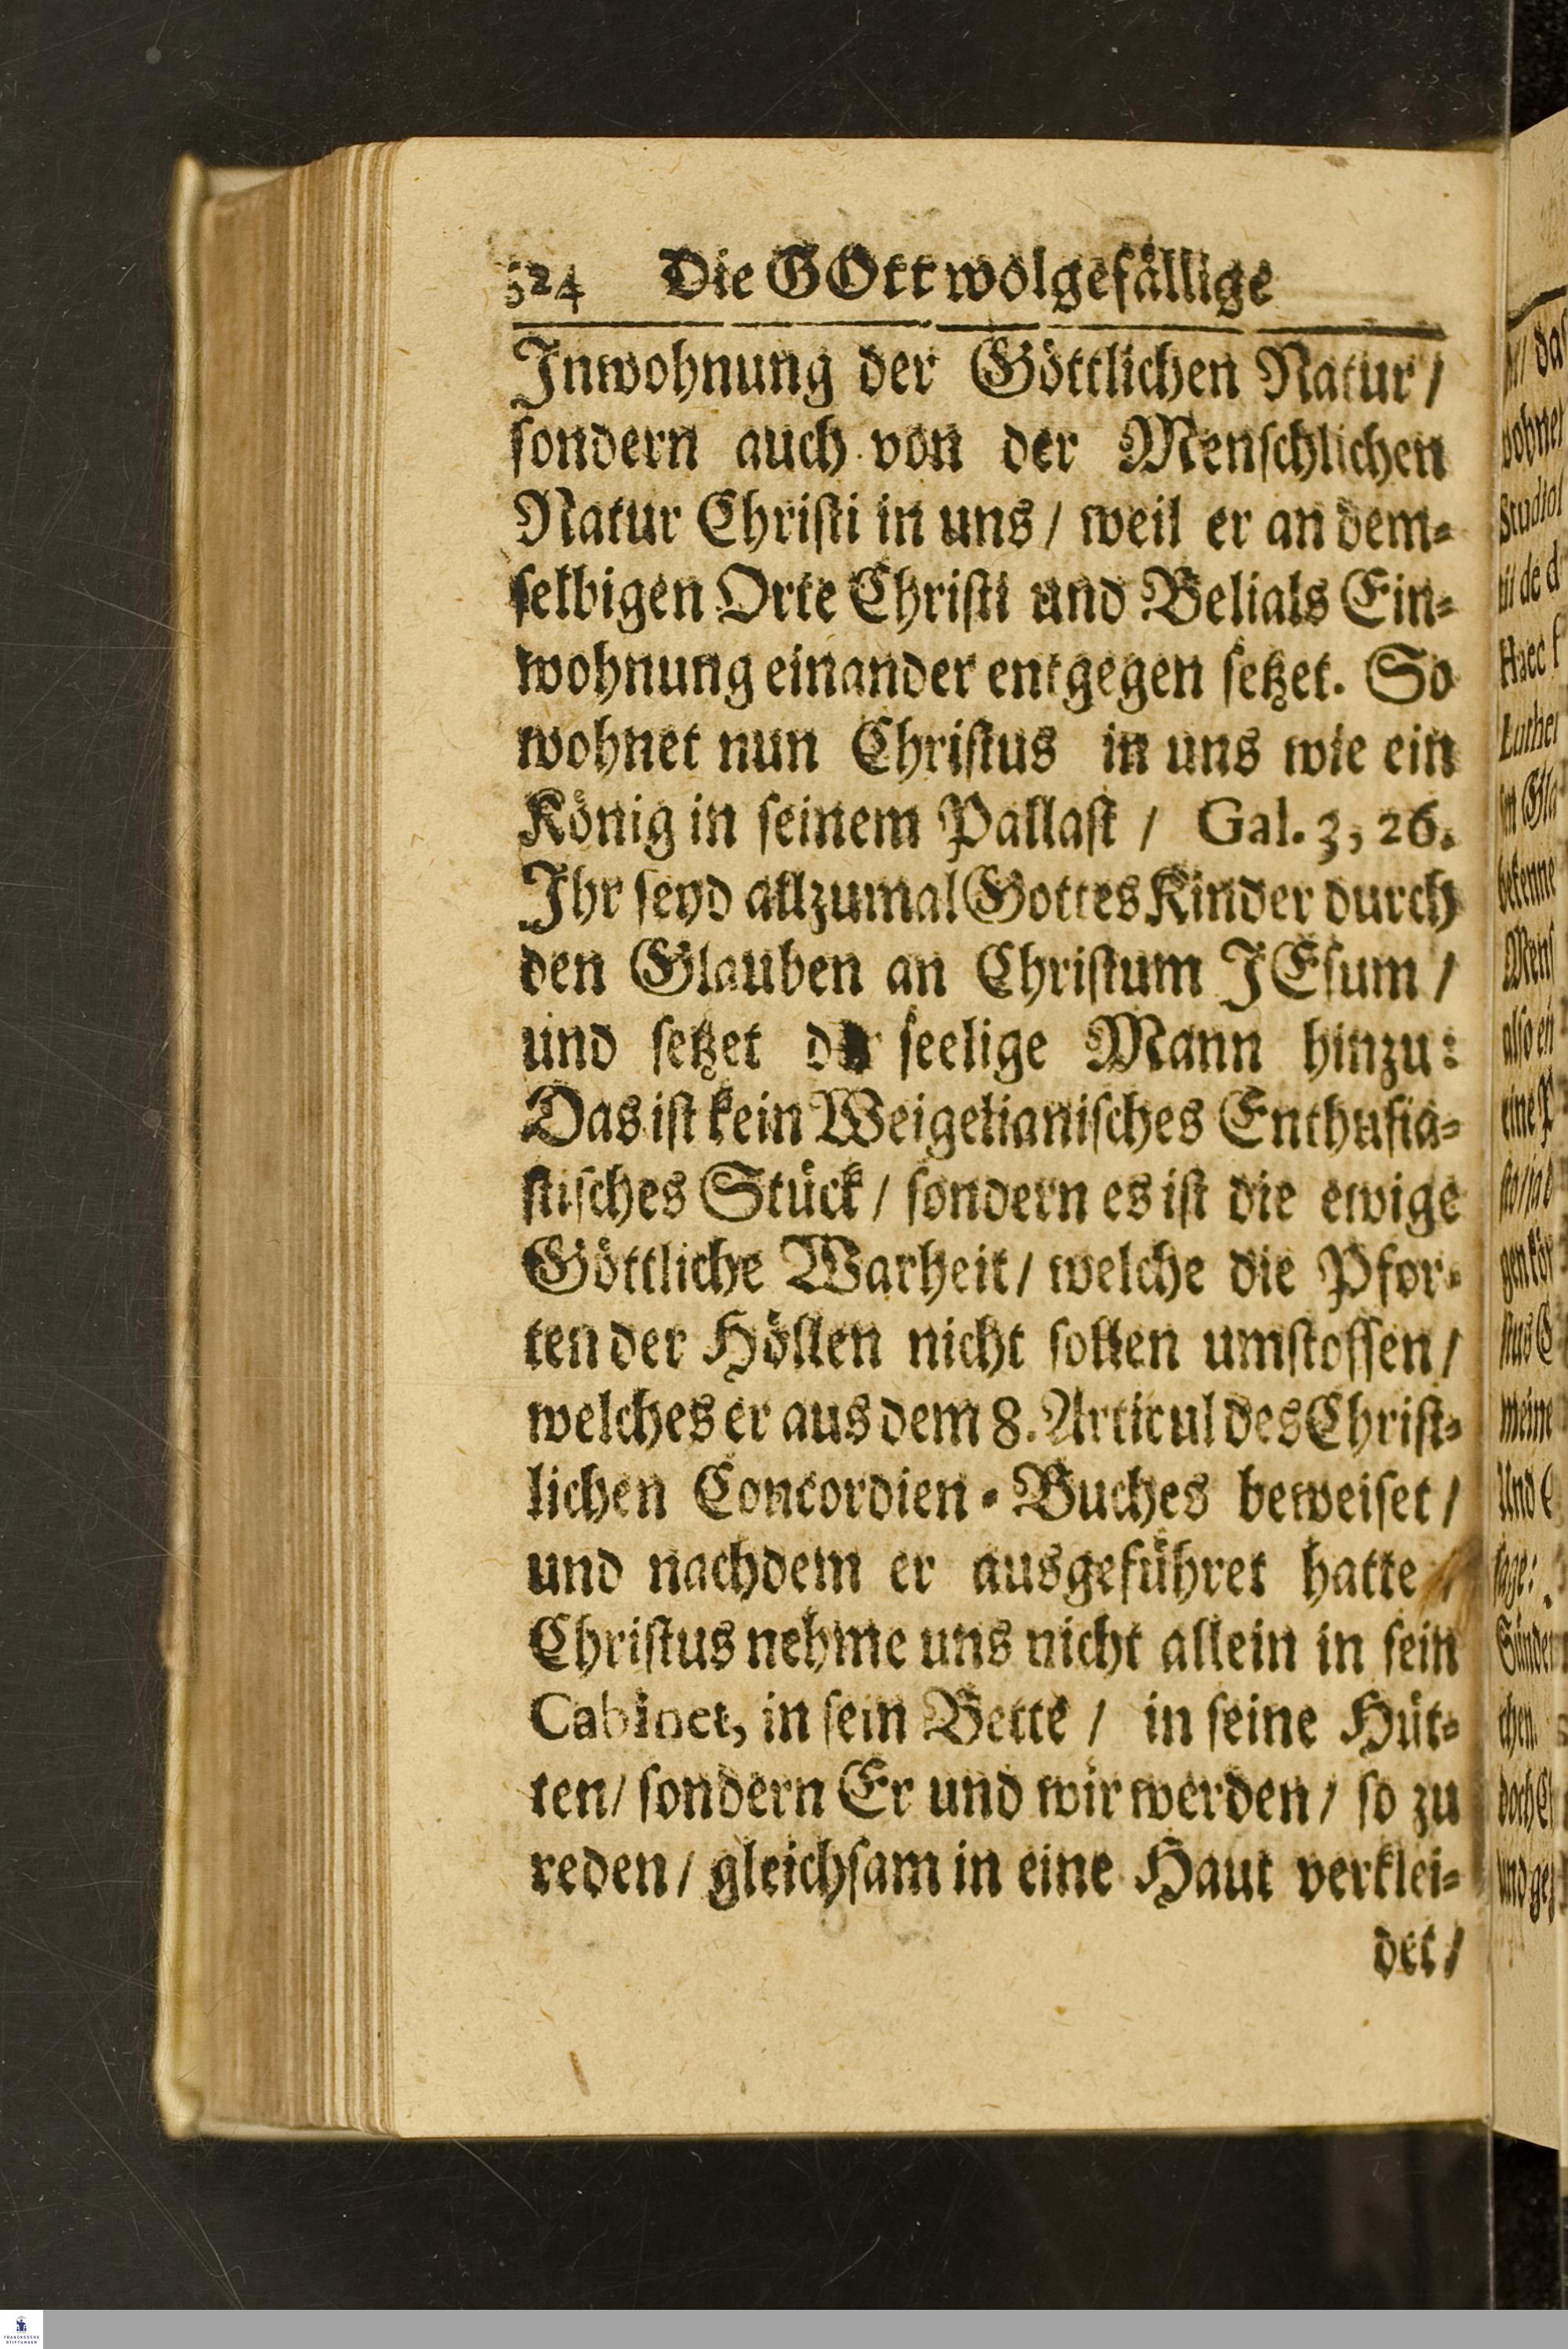 524 Die GOtt wolgefällige
Inwohnung der Göttlichen Natur /
sondern auch von der Menschlichen
Natur Christi in uns / weil er an dem-
selbigen Orte Christi und Belials Ein-
wohnung einander entgegen setzet. So
wohnet nun Christus in uns wie ein
König in seinem Pallast / Gal. 3, 26.
Ihr seyd allzumal Gottes Kinder durch
den Glauben an Christum JEsum /
und setzet der seelige Mann hinzu:
Das ist kein Weigelianisches Enthusia-
stisches Stück / sondern es ist die ewige
Göttliche Warheit / welche die Pfor-
ten der Höllen nicht sollen umstossen /
welches er aus dem 8. Articul des Christ-
lichen Concordien-Buches beweiset /
und nachdem er ausgeführet hatte /
Christus nehme uns nicht allein in sein
Cabinet, in sein Bette / in seine Hüt-
ten / sondern Er und wir werden / so zu
reden / gleichsam in eine Haut verklei-
det /
FRANCKESCHE
STIFTUNGEN